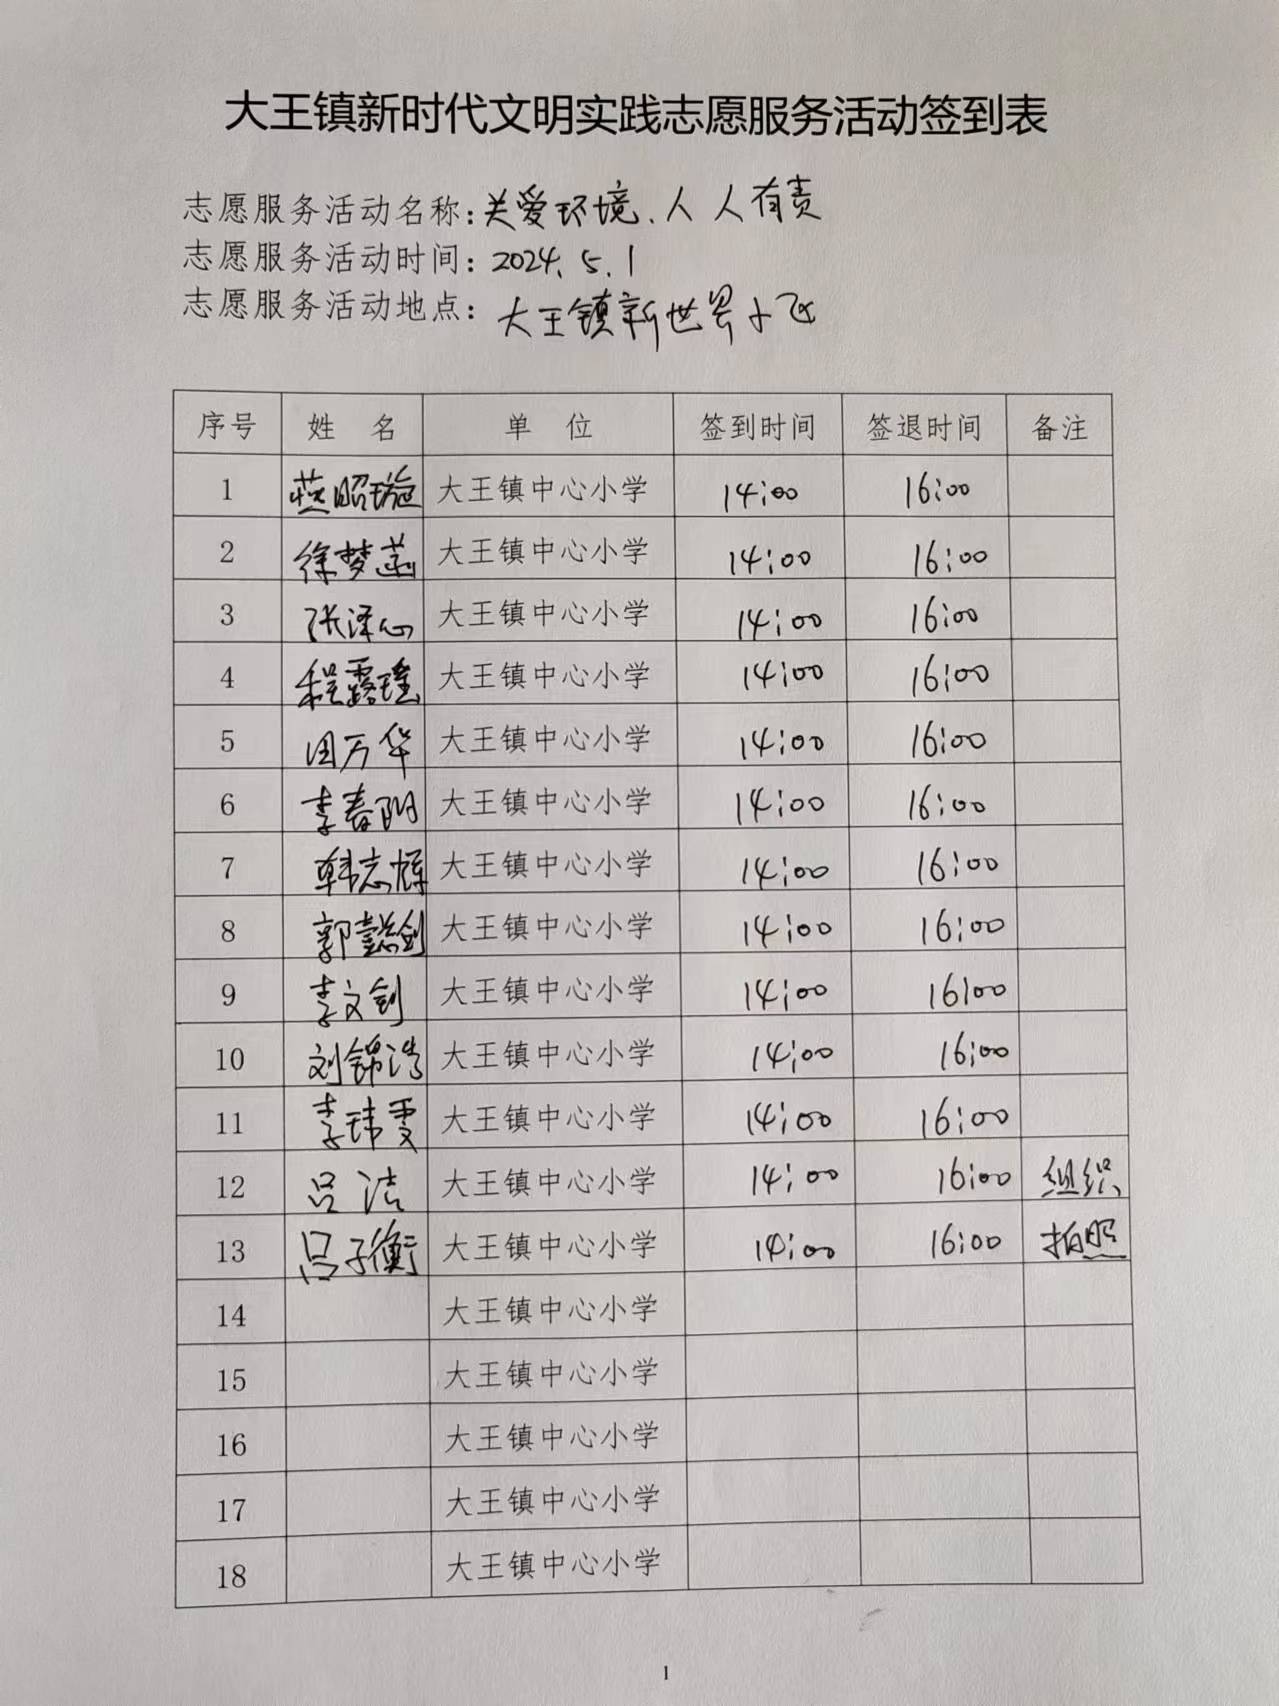 大王镇新时代文明实践志愿服务活动签到表
志愿服务活动名称:关爱环境、人人有责
志愿服务活动时间:2024.5.1
志愿服务活动地点:大王镇新世界小区
序号 姓 名 单 位 签到时间 签退时间 备注
1 燕昭璇 大王镇中心小学 14:00 16:00
2 徐梦菡 大王镇中心小学 14:00 16:00
3 张泽心 大王镇中心小学 14:00 16:00
4 程露瑶 大王镇中心小学 14:00 16:00
5 田万华 大王镇中心小学 14:00 16:00
6 李春阳 大王镇中心小学 14:00 16:00
7 韩志辉 大王镇中心小学 14:00 16:00
8 郭懿剑 大王镇中心小学 14:00 16:00
9 李文剑 大王镇中心小学 14:00 16:00
10 刘锦浩 大王镇中心小学 14:00 16:00
11 李玮雯 大王镇中心小学 14:00 16:00
12 吕洁 大王镇中心小学 14:00 16:00 组织
13 吕子衡 大王镇中心小学 14:00 16:00 拍照
14 大王镇中心小学
15 大王镇中心小学
16 大王镇中心小学
17 大王镇中心小学
18 大王镇中心小学
1